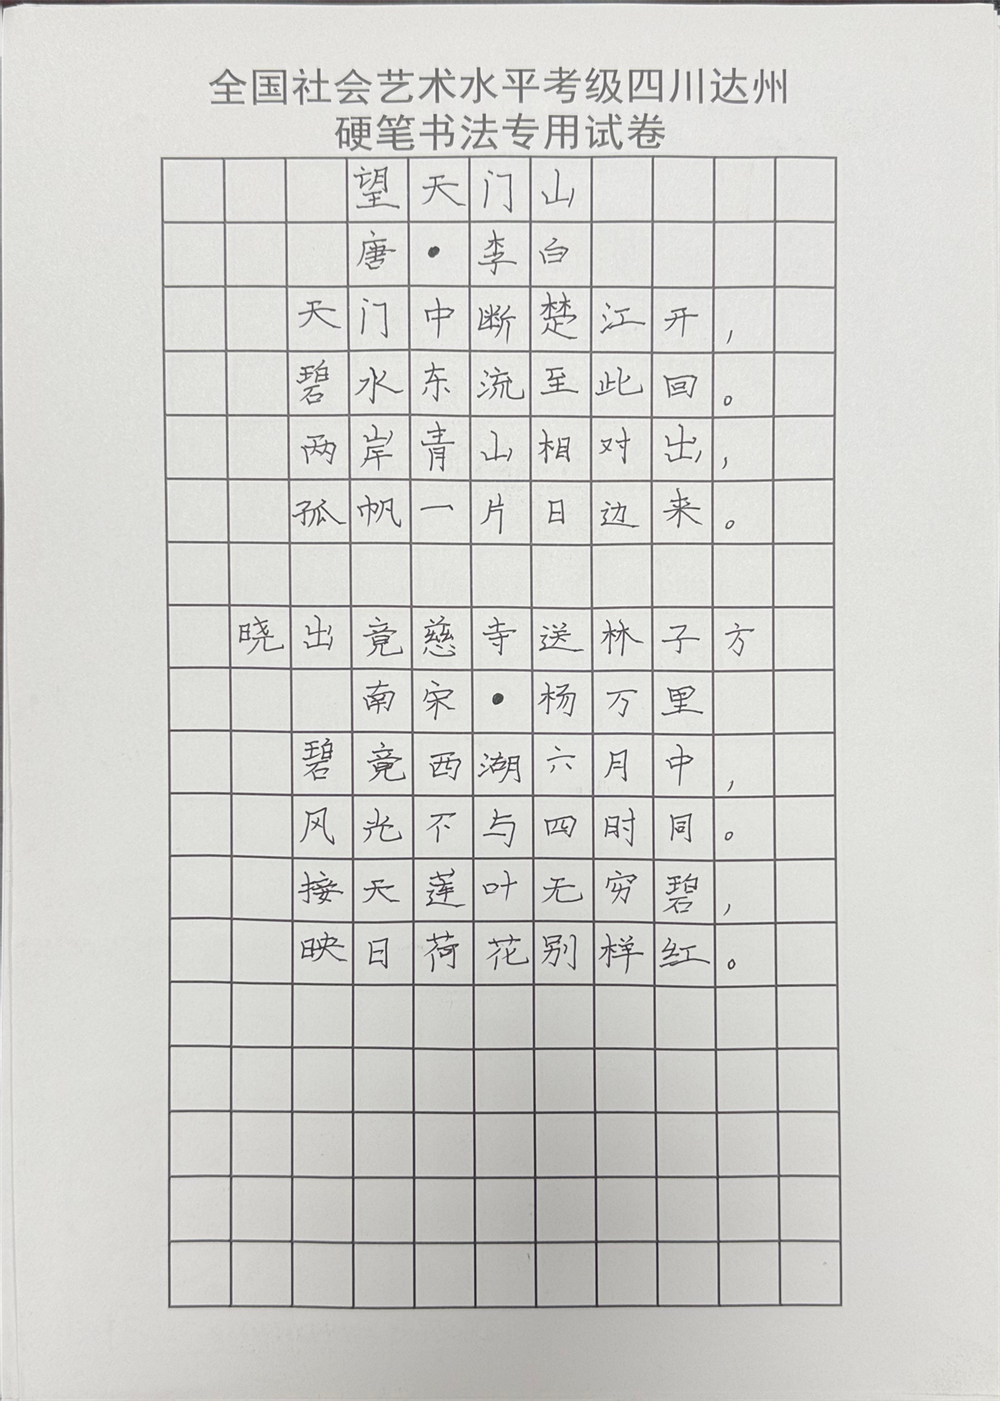 全国社会艺术水平考级四川达州
硬笔书法专用试卷
望天门山
唐•李白
天门中断楚江开，
碧水东流至此回。
两岸青山相对出，
孤帆一片日边来。
晓出竟慈寺送林子方
南宋•杨万里
碧竟西湖六月中，
风光不与四时同。
接天莲叶无穷碧，
映日荷花别样红。